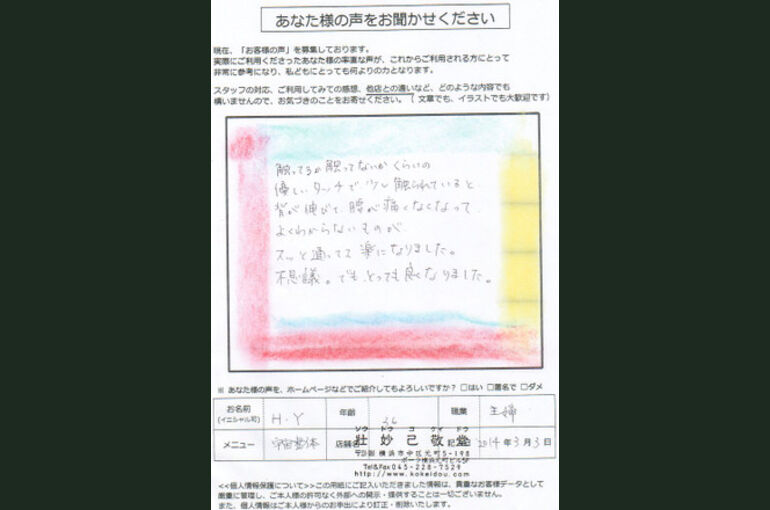 あなた様の声をお聞かせください
現在、「お客様の声」を募集しております。
実際にご利用くださったあなた様の率直な声が、これからご利用される方にとって
非常に参考になり、私どもにとっても何よりの力となります。
スタッフの対応、ご利用してみての感想、他店との違いなど、どのような内容でも
構いませんので、お気づきのことをお寄せください。（文章でも、イラストでも大歓迎です）
触ってるか触ってないかくらいの
優しいタッチで少し触られていると
背が伸びて、腰が痛くなくなって
よくわからないものが
スッと通ってて楽になりました。
不思議。でもとっても良くなりました。
※ あなた様の声を、ホームページなどでご紹介してもよろしいですか？ □はい □匿名で □ダメ
お名前 (イニシャル可) H・Y 年齢 36 職業 主婦
メニュー 宇宙整体 店舗名 記 日 2014年3月3日
ソウ ドウ コ ケイ ドウ
壮妙己敬堂
横浜市中区元町5-198
Tel&Fax 045-228-7529
http://www.kokeidou.com
<<個人情報保護について>>この用紙にご記入いただきました情報は、貴重なお客様データとして
厳重に管理し、ご本人様の許可なく外部への開示・提供することは一切ございません。
また、個人情報はご本人様からのお申出により訂正・削除いたします。